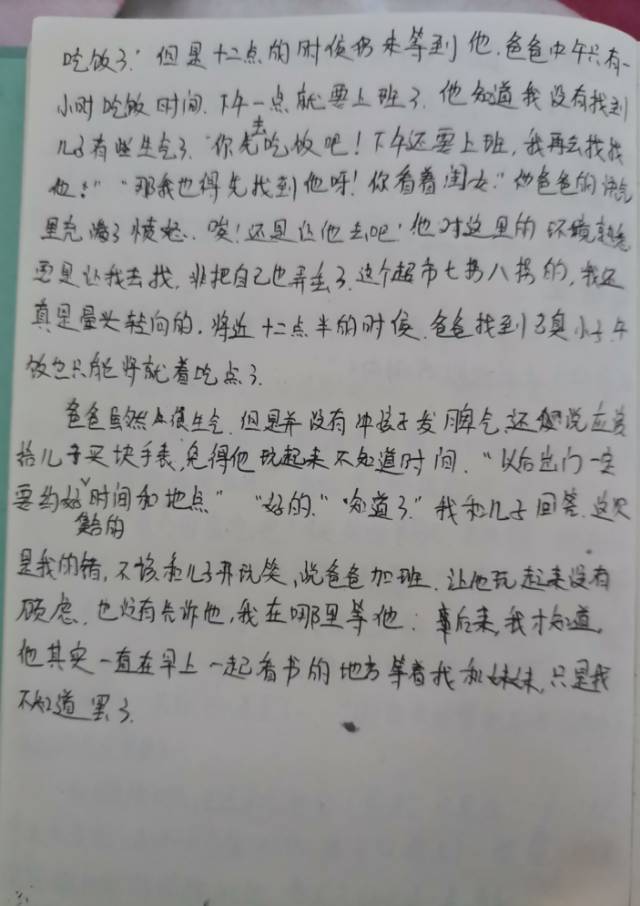 吃饭了！但是十二点的时候仍未等到他，爸爸中午只有一
小时吃饭时间，下午一点就要上班了。他知道我没有找到
儿子有些生气了，“你先去吃饭吧！下午还要上班，我再去找找
他！”“那我也得先找到他呀！你看着闺女。”他爸爸的语气
里充满了愤怒。唉！还是让他去吧！他对这里的环境熟悉
要是让我去找，非把自己也弄丢了，这个超市七拐八拐的，我还
真是晕头转向的，将近十二点半的时候，爸爸找到了臭小子，午
饭也只能将就着吃点了。
爸爸虽然很生气，但是并没有冲孩子发脾气，还说应该
给儿子买块手表，免得他玩起来不知道时间，“以后出门一定
要约好集合的时间和地点”“好的。”“知道了。”我和儿子回答，这次
是我的错，不该和儿子开玩笑，说爸爸加班，让他玩起来没有
顾虑，也没有告诉他，我在哪里等他；事后来，我才知道，
他其实一直在早上一起看书的地方等着我和妹妹，只是我
不知道罢了。